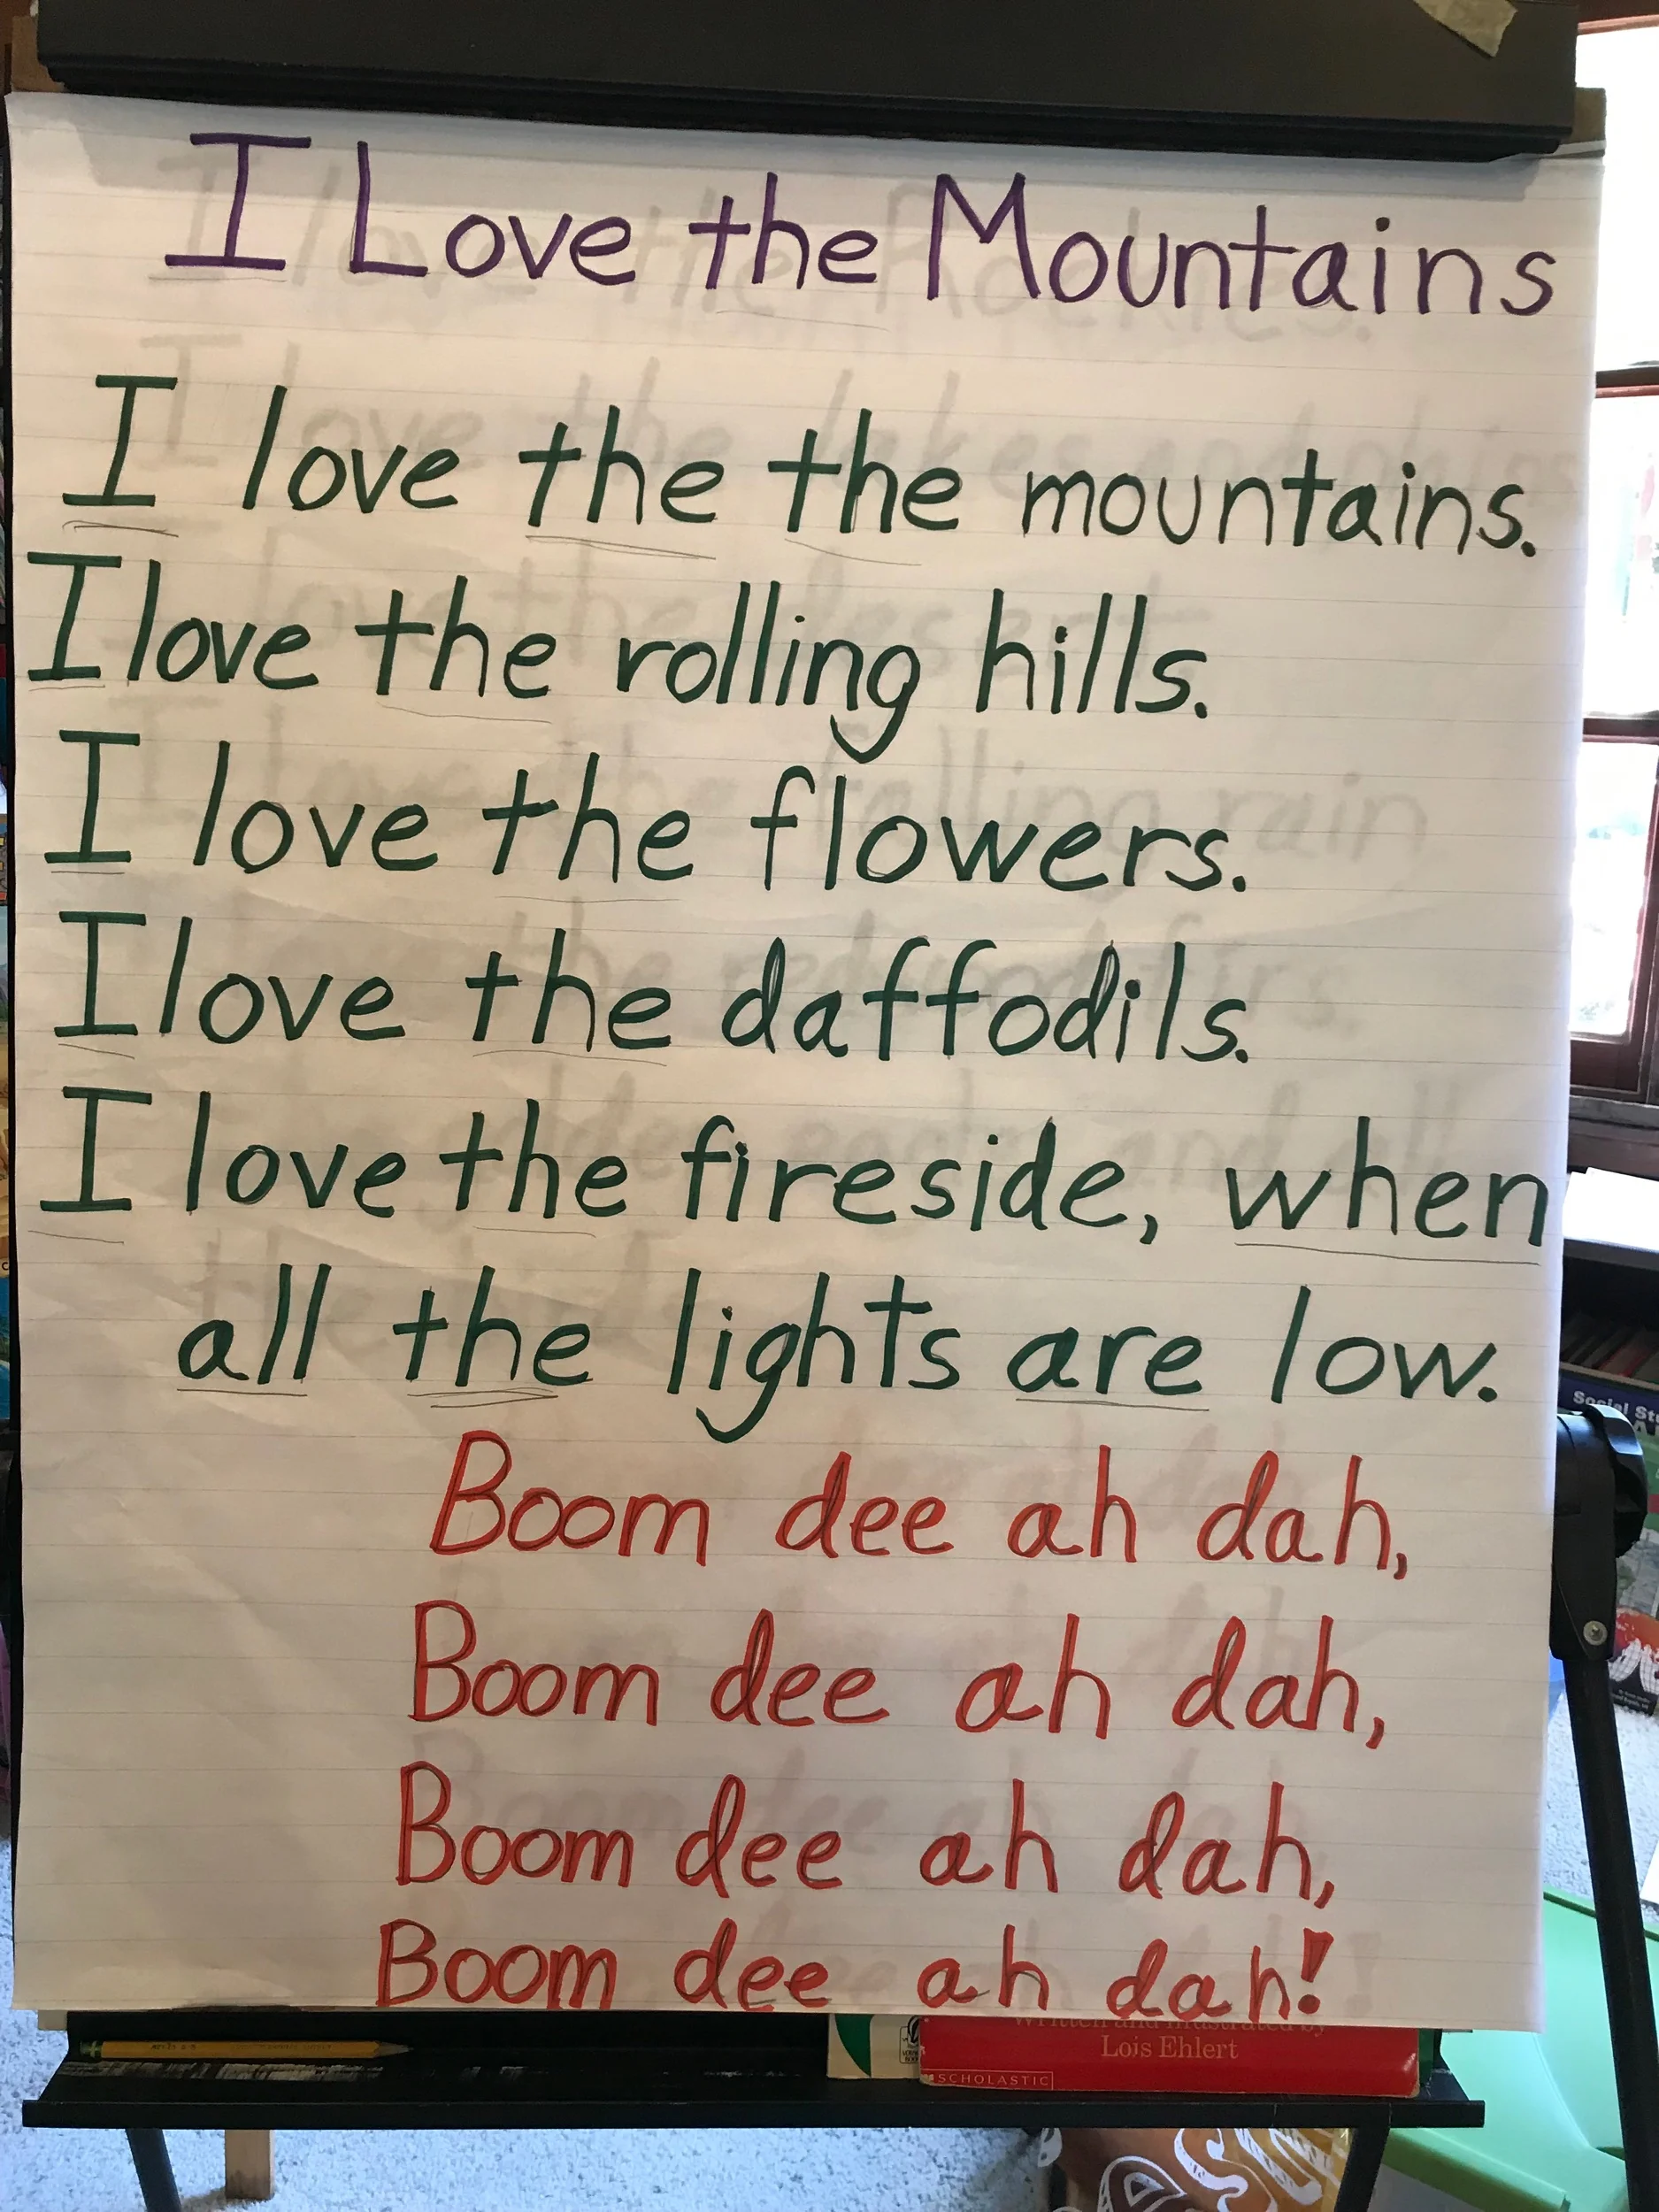 I Love the Mountains
I love the the mountains.
I love the rolling hills.
I love the flowers.
I love the daffodils.
I love the fireside, when
all the lights are low.
Boom dee ah dah,
Boom dee ah dah,
Boom dee ah dah,
Boom dee ah dah!
Written and illustrated by
Lois Ehlert
SCHOLASTIC
Social